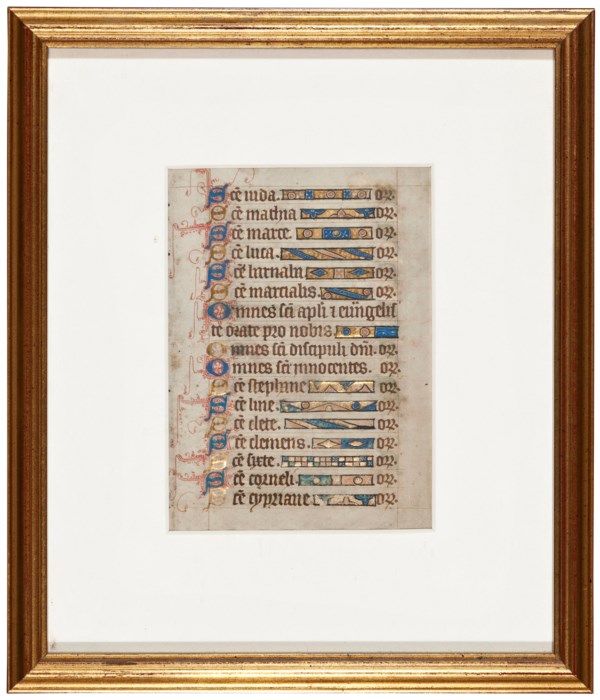 Scẽ iuda. or̃.
Scẽ mathia or̃.
Scẽ marce. or̃.
Scẽ luca. or̃.
Scẽ barnaba or̃.
Scẽ marcialis. or̃.
Omnes sc̃i apl̃i ⁊ euãgelis
te orate pro nobis.
Omnes sc̃i discipuli dñi. or̃.
Omnes sc̃i innocentes. or̃.
Scẽ stephane or̃.
Scẽ line. or̃.
Scẽ clete. or̃.
Scẽ clemens. or̃.
Scẽ sixte. or̃.
Scẽ corneli. or̃.
Scẽ cypriane or̃.